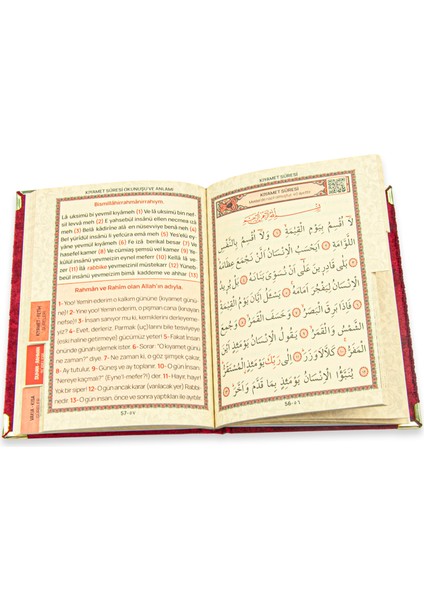 KIYAMET SÛRESİ OKUNUŞU VE ANLAMI
Bismillâhirrahmânirrahıym.
Lâ uksimü bi yevmil kıyâmeh (1) Ve lâ uksimü bin nef-
sil levvâ meh (2) E yahsebül insânü ellen necmea ızâ
meh (3) Belâ kâdirîne alâ en nüsevviye benâ neh (4)
Bel yürîdül insânü li yefcüra emâ meh (5) Yes'elü ey
yâne yevmül kıyâmeh (6) Fe izâ berikal besar (7) Ve
hasefel kamer (8) Ve cümiaş şemsü vel kamer (9) Ye-
kûlül insânü yevmeizin eynel meferr (10) Kellâ lâ ve-
zer (11) İlâ rabbike yevmeizinil müstekarr (12) Yüneb-
beül insânü yevmeizim bimâ kaddeme ve ahhar (13)
Rahmân ve Rahîm olan Allah'ın adıyla.
1- Yoo! Yemin ederim o kalkım gününe (kıyamet günü-
ne)! 2- Yine yoo! Yemin ederim, o pişman cana (kınayan
nefse)! 3- İnsan sanıyor mu ki, kemiklerini derleyeme-
yiz? 4- Evet, derleriz. Parmak (uç) larını bile tesviyeye
(eski haline getirmeye) gücümüz yeter! 5- Fakat İnsan
önünde günah işlemek ister. 6- Sorar: "O kıyamet günü
ne zaman?" diye! 7- Ne zaman ki, o göz şimşek çakar,
8- Ay tutulur. 9- Güneş ve ay toplanır. 10- O gün İnsan
"Nereye kaçmalı?" (Eyne'l-mefer?) der. 11- Hayır, hayır!
Yok bir siper! 12- O gün ancak karar (varılacak yer) Rabbı-
nadır. 13- O gün insan, önce ve sonra yaptıkları ile ayıtılır.
57-٥٧
KIYAMET SÛRESİ
KIYAMET SÛRESİ
لَٓا اُقْسِمُ بِيَوْمِ الْقِيٰمَةِ ۝ وَلَٓا اُقْسِمُ بِالنَّفْسِ
اللَّوَّامَةِ ۝ اَيَحْسَبُ الْاِنْسَانُ اَلَّنْ نَجْمَعَ عِظَامَهُ
۝ بَلٰى قَادِرٖينَ عَلٰٓى اَنْ نُسَوِّيَ بَنَانَهُ ۝ بَلْ يُرٖيدُ
الْاِنْسَانُ لِيَفْجُرَ اَمَامَهُ ۝ يَسْـَٔلُ اَيَّانَ يَوْمُ الْقِيٰمَةِ
۝ فَاِذَا بَرِقَ الْبَصَرُ ۝ وَخَسَفَ الْقَمَرُ ۝ وَجُمِعَ
الشَّمْسُ وَالْقَمَرُ ۝ يَقُولُ الْاِنْسَانُ يَوْمَئِذٍ اَيْنَ
الْمَفَرُّ ۝ كَلَّا لَا وَزَرَ ۝ اِلٰى رَبِّكَ يَوْمَئِذٍۨ الْمُسْتَقَرُّ
۝ يُنَبَّؤُا الْاِنْسَانُ يَوْمَئِذٍ بِمَا قَدَّمَ وَاَخَّرَ ۝
56-٥٦